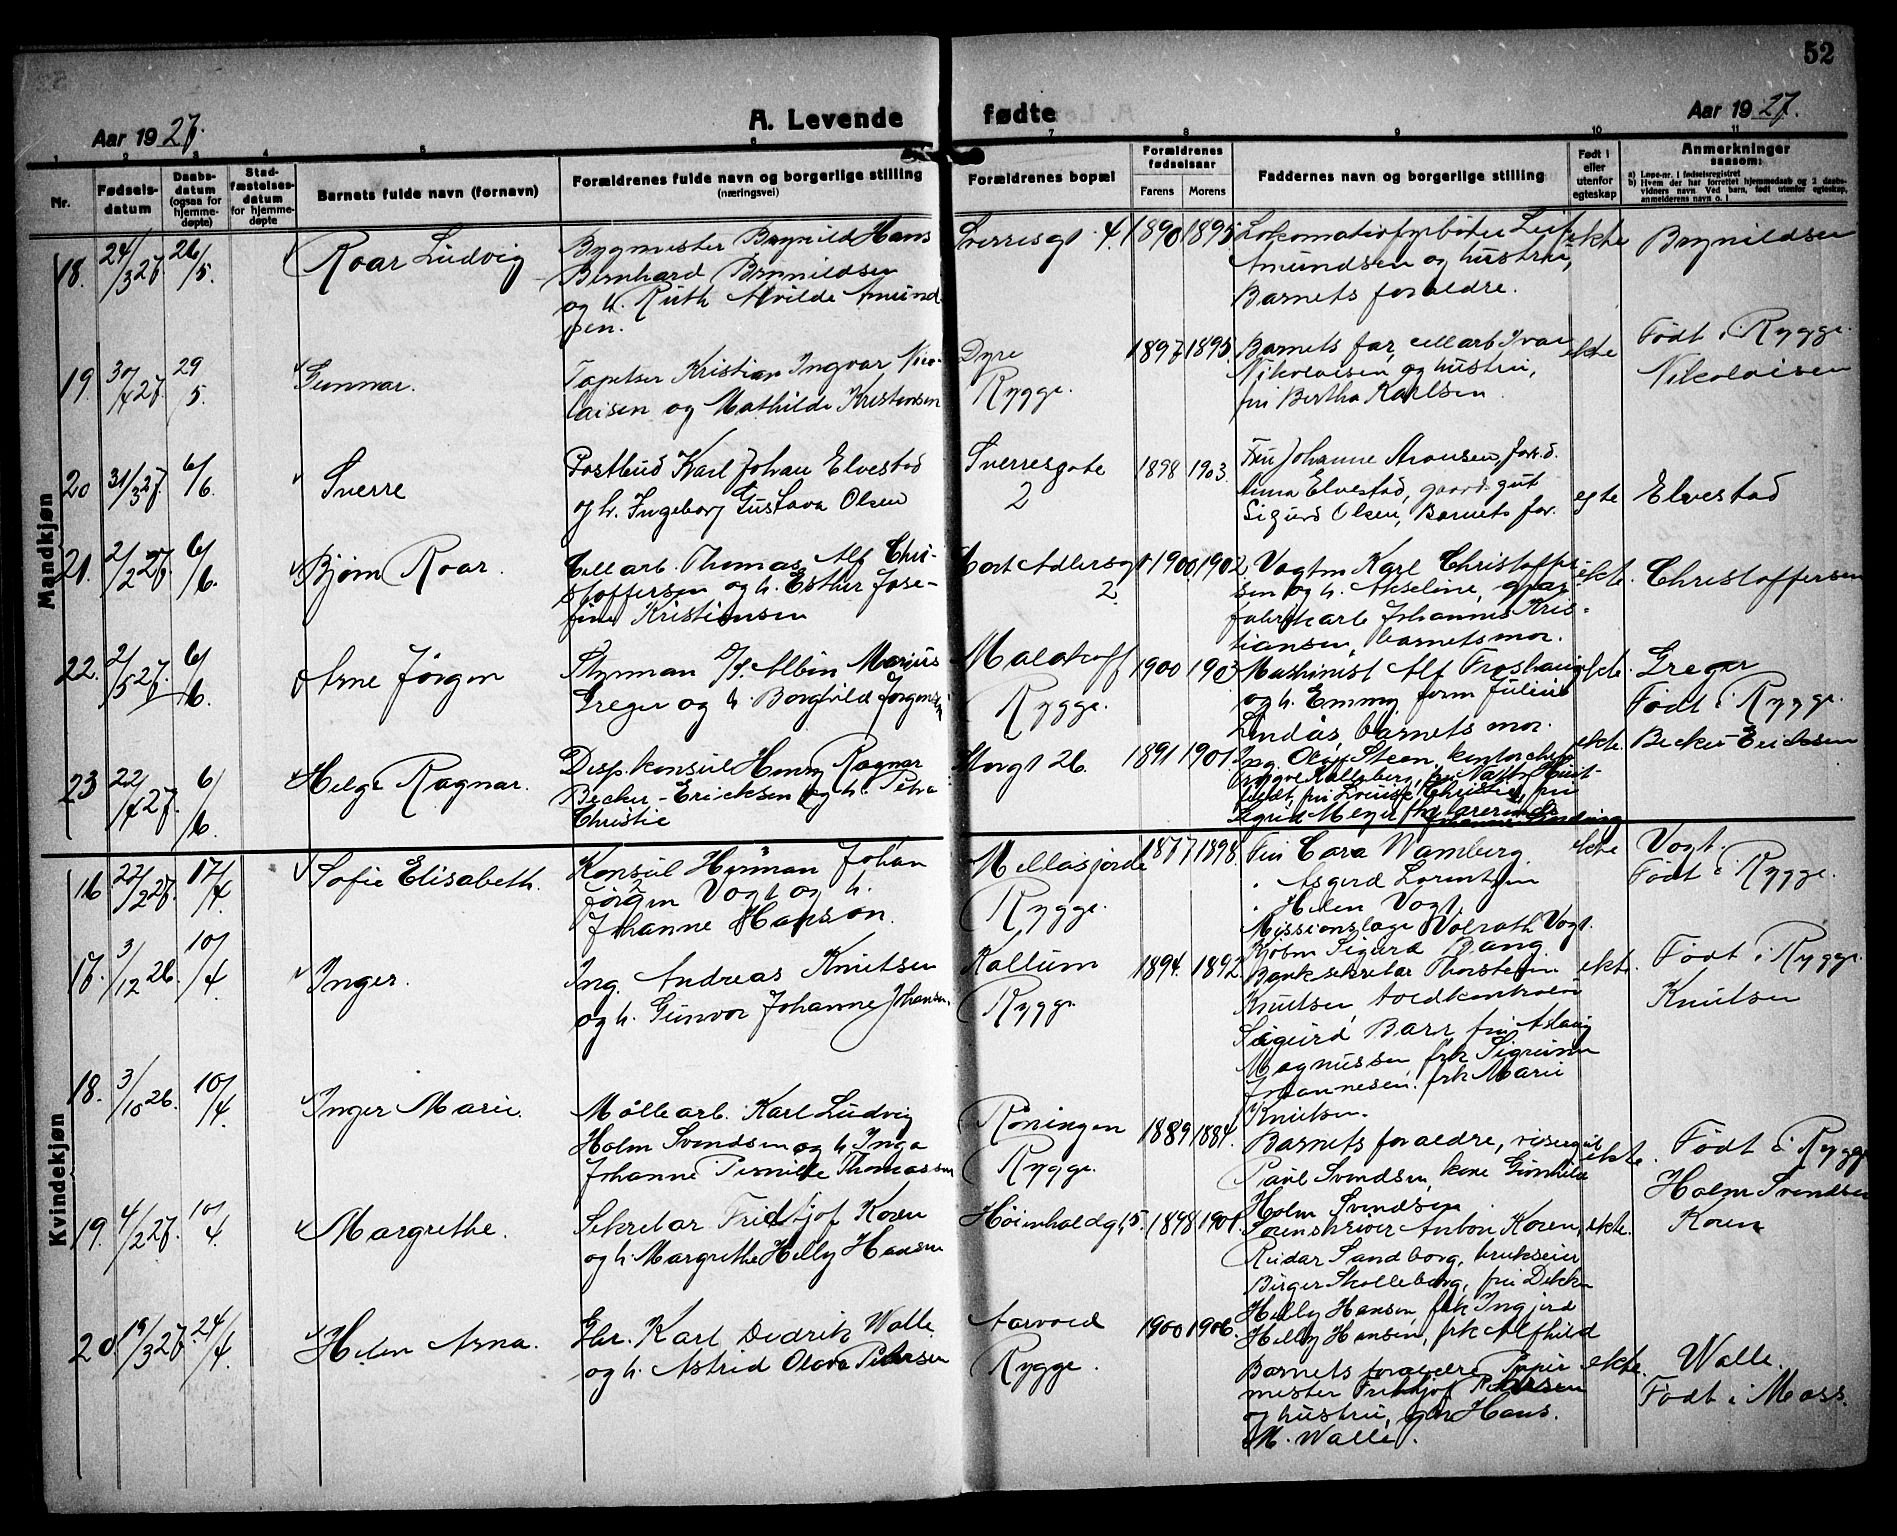 52
Aar 1927.
A. Levende fødte
Aar 1927.
1 2 3 4 5 6 7 8 9 10 11
Nr.
Fødsels-
datum
Daabs-
datum
(ogsaa for
hjemme-
døpte)
Stad-
fæstelses-
datum
for hjemme-
døpte
Barnets fulde navn (fornavn)
Forældrenes fulde navn og borgerlige stilling
(næringsvei)
Forældrenes bopæl
Forældrenes
fødselsaar
Farens Morens
Faddernes navn og borgerlige stilling
Født i
eller
utenfor
egteskap
Anmerkninger
saasom:
a) Løpe-nr. i fødselsregistret
b) Hvem der har forrettet hjemmedaab og 2 daabs-
vidners navn. Ved barn, født utenfor egteskap,
anmelderens navn o. l.
Mandkjøn
18. 24/3 27. 26/5. Roar Ludvig
Bygmester Brynild Hans
Bernhard Brynildsen
og h. Ruth Alvilde Amund
sen.
Sverresgt. 4. 1890 1895
Lokomotivfyrbøter Leif
Amundsen og hustru,
Barnets foraldre.
ekte Brynildsen
19. 30/4 27. 29/5. Gunnar.
Tapetser Kristian Ingvar Nico-
laisen og Mathilde Kristensen
Dyre
Rygge.
1897 1895.
Barnets far, cellarb Ivar
Nikolaisen og hustru,
fru Bertha Karlsen.
ekte
Født i Rygge.
Nikolaisen
20 31/3 27. 6/6. Sverre
Postbud Karl Johan Elvestad
og h. Ingeborg Gustava Olsen
Sverresgate
2
1898 1903.
Fru Johanne Aronsen, Jord.
Anna Elvestad, gaard.gut
Sigurd Olsen, Barnets far.
egte Elvestad
21. 2/2 27. 6/6. Bjørn Roar.
Cellarb. Thomas Alf Chri-
stoffersen og h. Esther Jose-
fine Kristiansen
Cort Adlersg
2.
1900 1902.
Vogtm Karl Christoffer
sen og h. Akseline,
fabrikarb Johannes Kris-
tiansen, barnets mor.
ekte. Christoffersen
22. 2/5 27. 6/6. Arne Jörgen
Styrman D/S. Albin Marius
Greger og h Borghild Jørgensen
Malakoff
Rygge.
1900 1903
Maskinist Alf Froshaug
og h. Emmy, form Julius
Lindås, barnets mor.
ekte. Greger
Født i Rygge.
23 22/4 27. 6/6. Helge Ragnar.
Disp. konsul Henry Ragnar
Becker-Ericksen og h. Petra
Christie
Storgt 26. 1891 1901.
Ing. Oluf Steen, kontorchef
ekte. Becker-Ericksen
Kvindekjøn
16 22/2 27. 17/4. Sofie Elisabeth.
Konsul Herman Johan
Jörgen Vogt og h.
Johanne Hanson.
Mellasjorde
Rygge.
1877 1898
Fru Cara Wamberg.
" Asgerd Lorentzen
" Helen Vogt
Missionslæge Volrath Vogt.
ekte Vogt.
Født i Rygge.
17. 3/12 26. 10/4 Inger.
Ing. Andreas Knutsen
og h. Gunvor Johanne Johansen.
Kallum
Rygge
1894. 1892.
Kjøbm Sigurd Bang
Banksekretær Thorstein
Knutsen, toldkontrolör
Sigurd Barr, fru Aslaug
Magnussen, frk Sigrunn
Johannesen, frk Marie
Knutsen.
ekte.
Født i Rygge.
Knutsen
18. 3/10 26. 10/4 Inger Marie.
Møllearb. Karl Ludvig
Holm Svendsen og h. Inga
Johanne Pernille Thomassen
Röningen
Rygge.
1889 1884.
Barnets foraldre, visergut
Paul Svendsen, kone Gunhild
Holm Svendsen
ekte. Født i Rygge
Holm Svendsen
19. 4/2 27. 10/4. Margrethe.
Sekretær Fridtjof Koren
og h. Margrethe Helly Hansen
Høienhaldgt. 5. 1898 1901.
Sorenskriver Anton Koren,
Reidar Sandborg, brukseier
Birger Skolleborg, fru Dikken
Helly Hansen, frk Ingjerd
Helly Hansen, frk Alfhild
ekte. Koren
20 19/3 27. 24/4. Helen Arna.
Gbr. Karl Dedrik Walle
og h. Astrid Olava Petersen
Aarvold
Rygge.
1900 1906.
Barnets foraldre, Papir
mester Fridtjof Petersen
og hustru, gbr Hans.
M. Walle.
ekte. Walle.
Født i Moss.